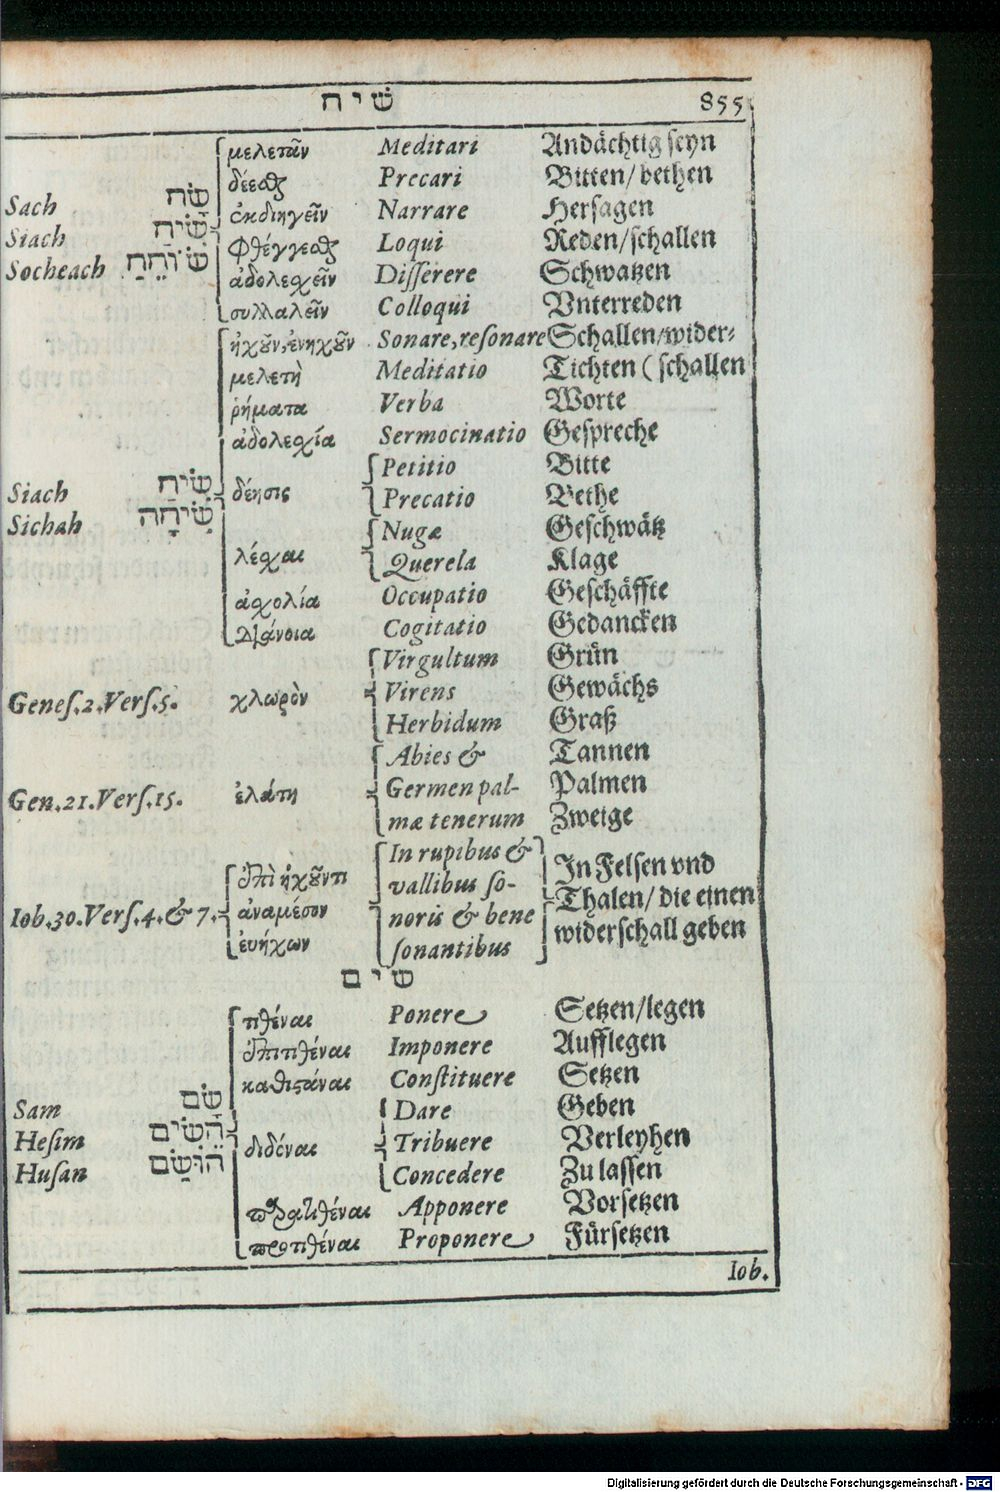 שׂיח 855
μελετᾶν Meditari Andächtig seyn
δέεσθαι Precari Bitten/ bethen
Sach שָׂח ἐκδιηγεῖν Narrare Hersagen
Siach שִׂיחַ φθέγγεσθαι Loqui Reden/schallen
Socheach שׂוֹחֵחַ ἀδολεσχεῖν Disserere Schwatzen
συλλαλεῖν Colloqui Vnterreden
ἠχοῦν, ἐνηχοῦν Sonare, resonare Schallen/wider-
μελετὴ Meditatio Tichten ( schallen
ῥήματα Verba Worte
ἀδολεσχία Sermocinatio Gespreche
Petitio Bitte
Siach שִׂיחַ δέησις Precatio Bethe
Sichah שִׂיחָה Nugæ Geschwätz
λέσχαι Querela Klage
ἀσχολία Occupatio Geschäffte
διάνοια Cogitatio Gedancken
Virgultum Grün
Genes. 2. Vers. 5. χλωρὸν Virens Gewächs
Herbidum Graß
Abies & Tannen
Gen. 21. Vers. 15. ἐλάτη Germen pal- Palmen
mæ tenerum Zweige
In rupibus & In Felsen vnd
ἐπὶ ἠχοῦντι vallibus so- Thalen/ die einen
Iob. 30. Vers. 4. & 7. ἀναμέσον noris & bene widerschall geben
ἐυήχων sonantibus
שׂים
τιθέναι Ponere Setzen/legen
ἐπιτιθέναι Imponere Aufflegen
καθιστάναι Constituere Setzen
Sam שָׂם Dare Geben
Hesim הֵשִׂים διδόναι Tribuere Verleyhen
Husan הוּשַׂם Concedere Zu lassen
παρατιθέναι Apponere Vorsetzen
προτιθέναι Proponere Fürsetzen
Iob.
Digitalisierung gefördert durch die Deutsche Forschungsgemeinschaft - DFG